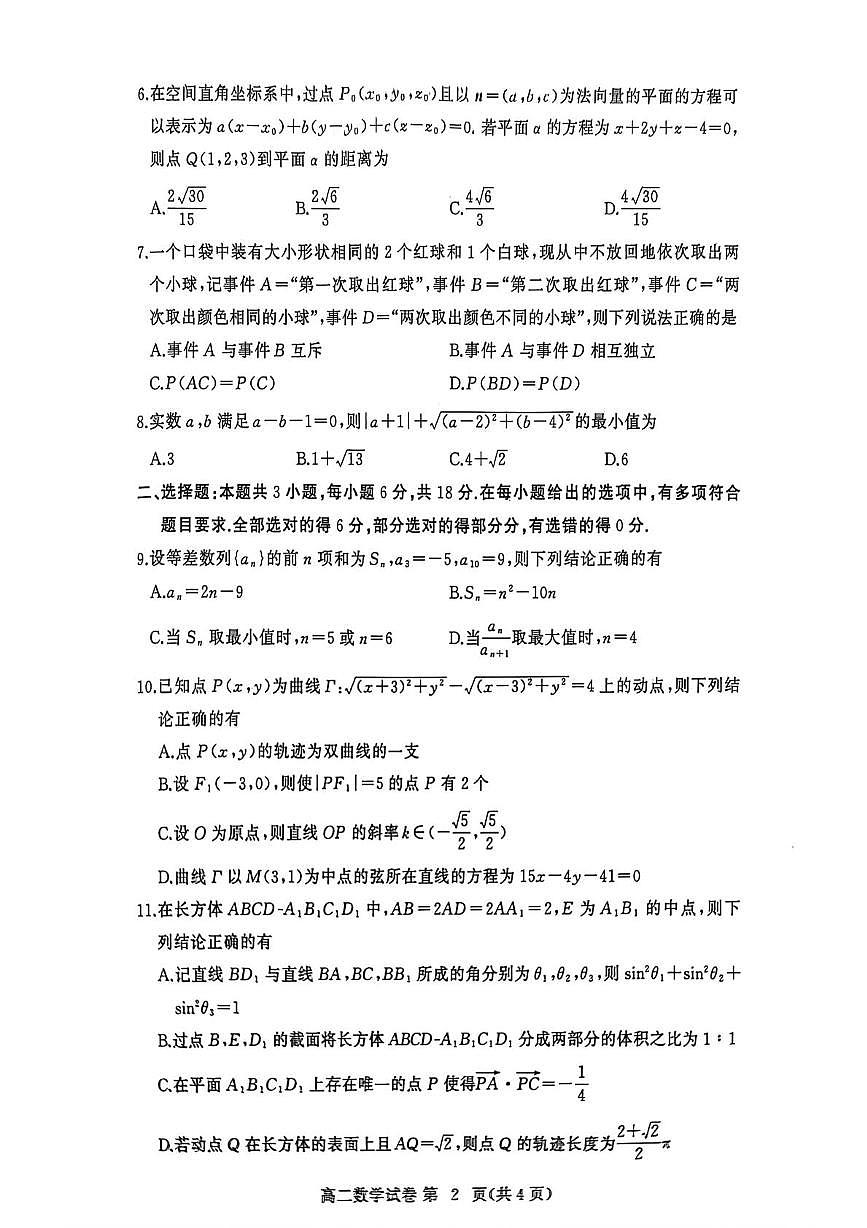 6.在空间直角坐标系中,过点 P₀(x₀,y₀,z₀)且以 n=(a,b,c)为法向量的平面的方程可
以表示为 a(x-x₀)+b(y-y₀)+c(z-z₀)=0. 若平面 α 的方程为 x+2y+z-4=0,
则点 Q(1,2,3)到平面 α 的距离为
A.2√30/15 B.2√6/3 C.4√6/3 D.4√30/15
7.一个口袋中装有大小形状相同的 2 个红球和 1 个白球,现从中不放回地依次取出两
个小球,记事件 A=“第一次取出红球”,事件 B=“第二次取出红球”,事件 C=“两
次取出颜色相同的小球”,事件 D=“两次取出颜色不同的小球”,则下列说法正确的是
A.事件 A 与事件 B 互斥 B.事件 A 与事件 D 相互独立
C.P(AC)=P(C) D.P(BD)=P(D)
8.实数 a,b 满足 a-b-1=0,则|a+1|+√((a-2)²+(b-4)²)的最小值为
A.3 B.1+√13 C.4+√2 D.6
二、选择题:本题共 3 小题,每小题 6 分,共 18 分.在每小题给出的选项中,有多项符合
题目要求.全部选对的得 6 分,部分选对的得部分分,有选错的得 0 分.
9.设等差数列{aₙ}的前 n 项和为 Sₙ,a₃=-5,a₁₀=9,则下列结论正确的有
A.aₙ=2n-9 B.Sₙ=n²-10n
C.当 Sₙ 取最小值时,n=5 或 n=6 D.当aₙ/aₙ₊₁取最大值时,n=4
10.已知点 P(x,y)为曲线 Γ:√((x+3)²+y²)-√((x-3)²+y²)=4 上的动点,则下列结
论正确的有
A.点 P(x,y)的轨迹为双曲线的一支
B.设 F₁(-3,0),则使|PF₁|=5 的点 P 有 2 个
C.设 O 为原点,则直线 OP 的斜率 k∈(-√5/2,√5/2)
D.曲线 Γ 以 M(3,1)为中点的弦所在直线的方程为 15x-4y-41=0
11.在长方体 ABCD-A₁B₁C₁D₁ 中,AB=2AD=2AA₁=2,E 为 A₁B₁ 的中点,则下
列结论正确的有
A.记直线 BD₁ 与直线 BA,BC,BB₁ 所成的角分别为 θ₁,θ₂,θ₃,则 sin²θ₁+sin²θ₂+
sin²θ₃=1
B.过点 B,E,D₁ 的截面将长方体 ABCD-A₁B₁C₁D₁ 分成两部分的体积之比为 1∶1
C.在平面 A₁B₁C₁D₁ 上存在唯一的点 P 使得PA→·PC→=-1/4
D.若动点 Q 在长方体的表面上且 AQ=√2,则点 Q 的轨迹长度为(2+√2)/2 π
高二数学试卷 第 2 页(共 4 页)